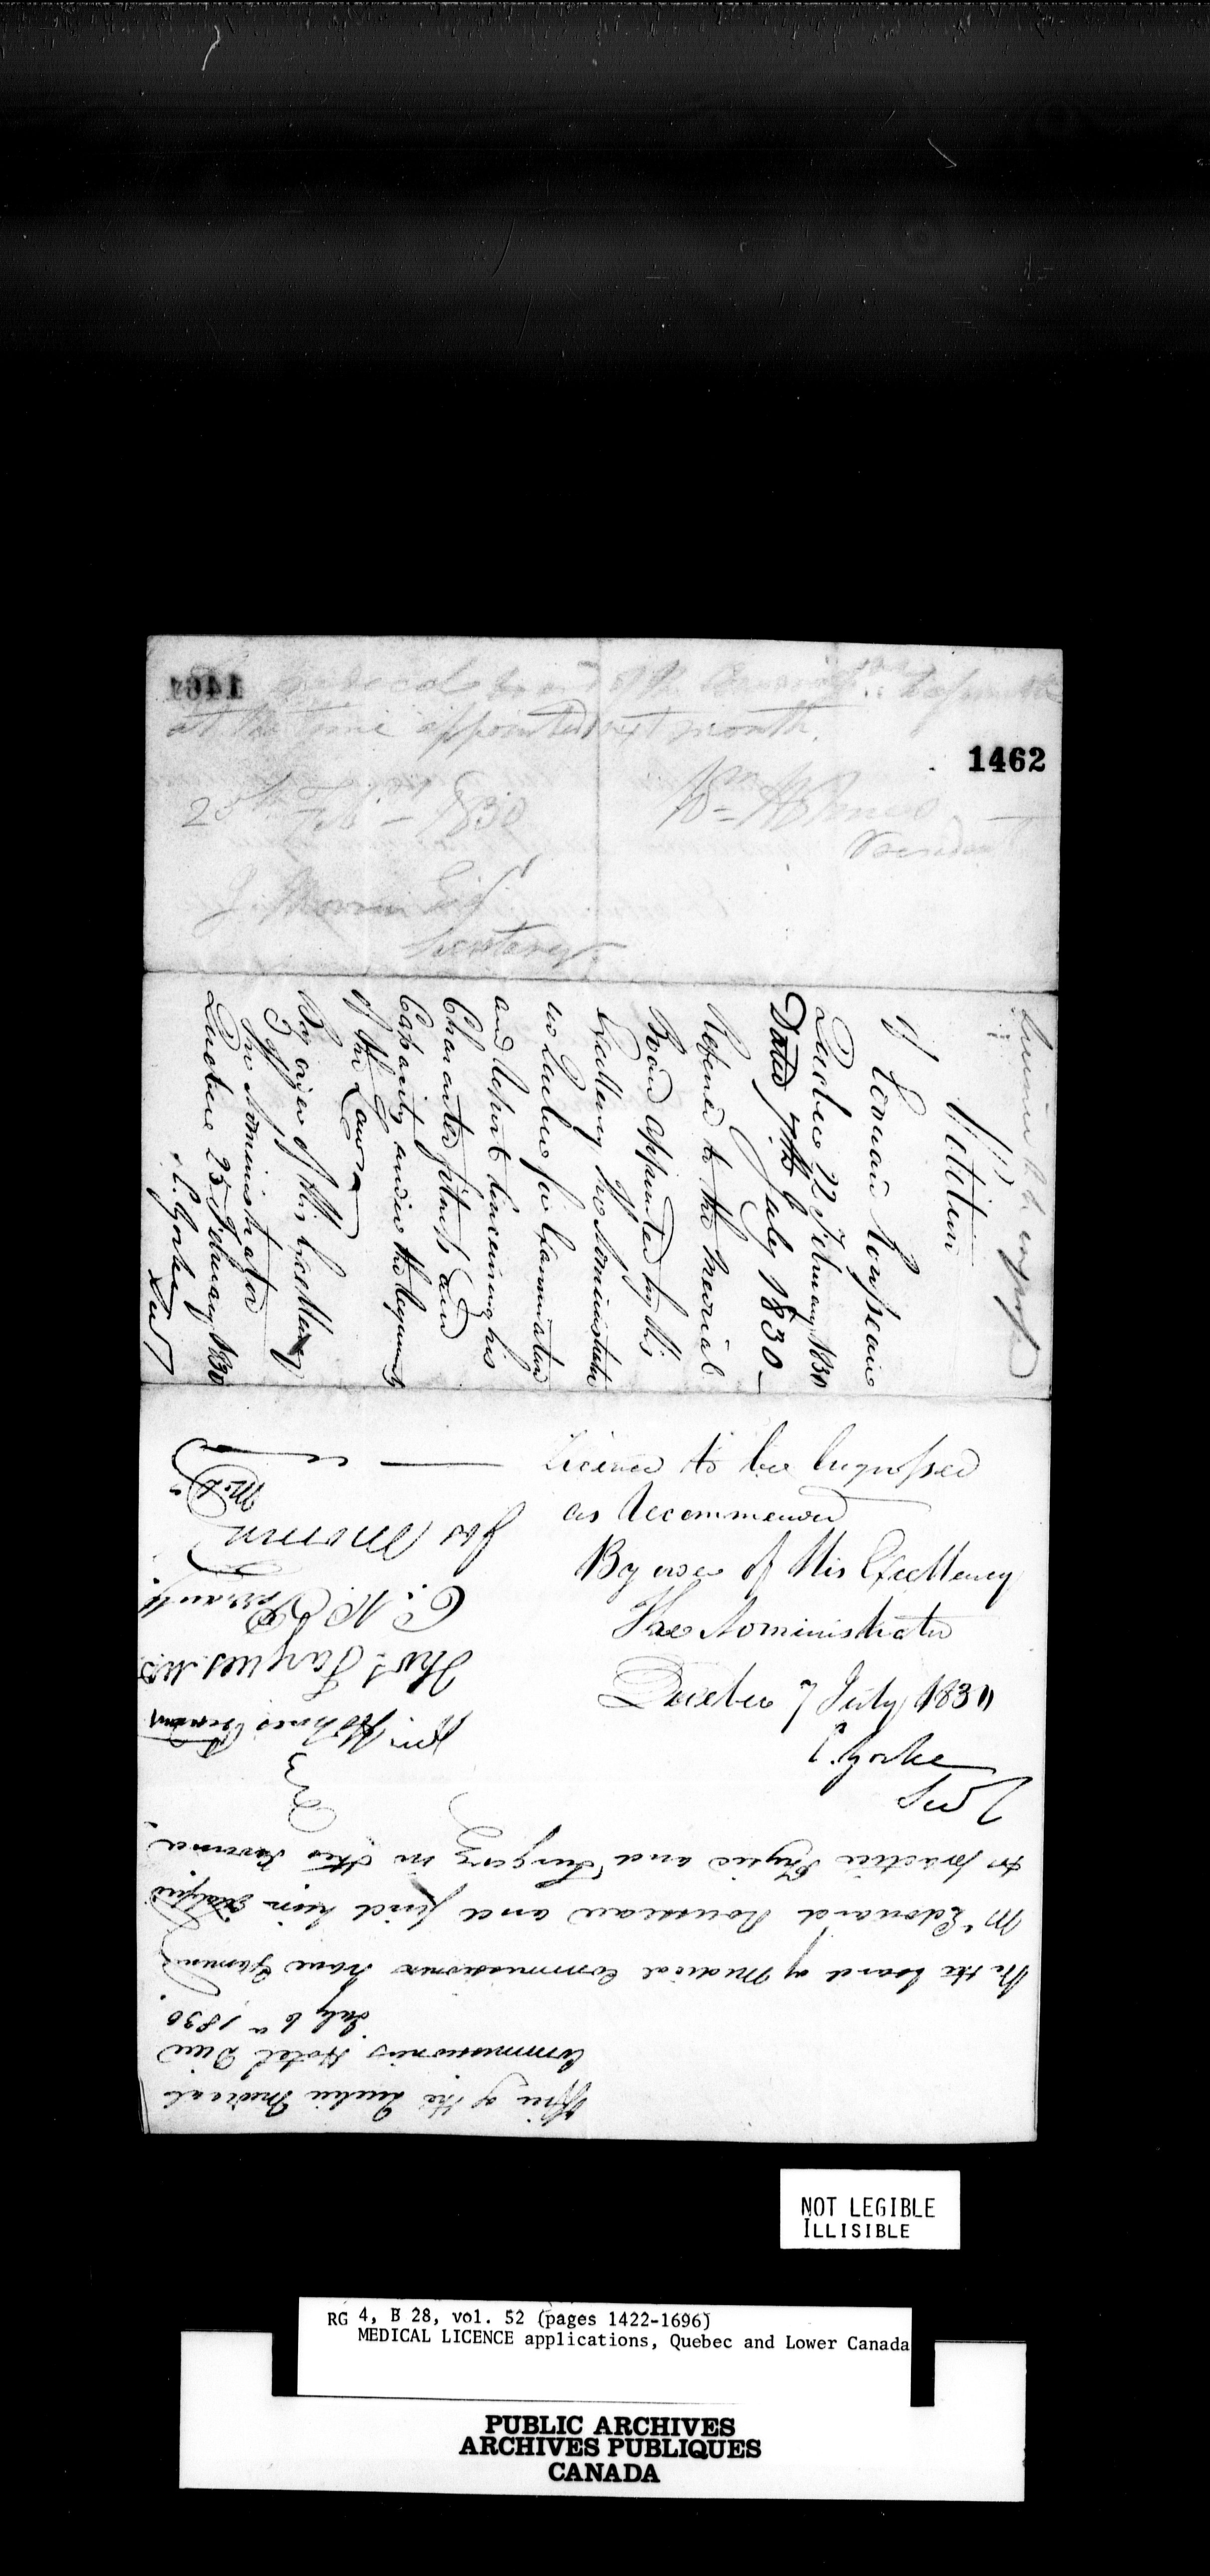 1461
Medical board of the
at the time appointed next month.
1462
25th Feb - 1830
Wm Holmes
President
J. Morrin Esq
Secretary
Petition
of Edouard Rousseau
Quebec 22 February 1830
Dated 7th July 1830 -
Referred to the Medical
Board appointed by His
Excellency the Administrator
for Quebec for Examination
and Report concerning his
Character fitness and
Capacity under the requirements
of the Law
By order of His Excellency
The Administrator
Quebec 25 February 1830
C. Yorke
Secy
Licence to be Engrossed
as Recommended
By order of His Excellency
The Administrator
Quebec 7 July 1830
C. Yorke
Secy
Office of the Quebec Medical
Commissioners Hotel Dieu
July 6th 1830
We the board of Medical Commissioners have Examined
Mr Edouard Rousseau and find him qualified
to practice Physic and Surgery in this Province
Wm Holmes President
Thos Fargues M.D.
C. N. Perrault
Jos Morrin
M.D
NOT LEGIBLE
ILLISIBLE
RG 4, B 28, vol. 52 (pages 1422-1696)
MEDICAL LICENCE applications, Quebec and Lower Canada
PUBLIC ARCHIVES
ARCHIVES PUBLIQUES
CANADA